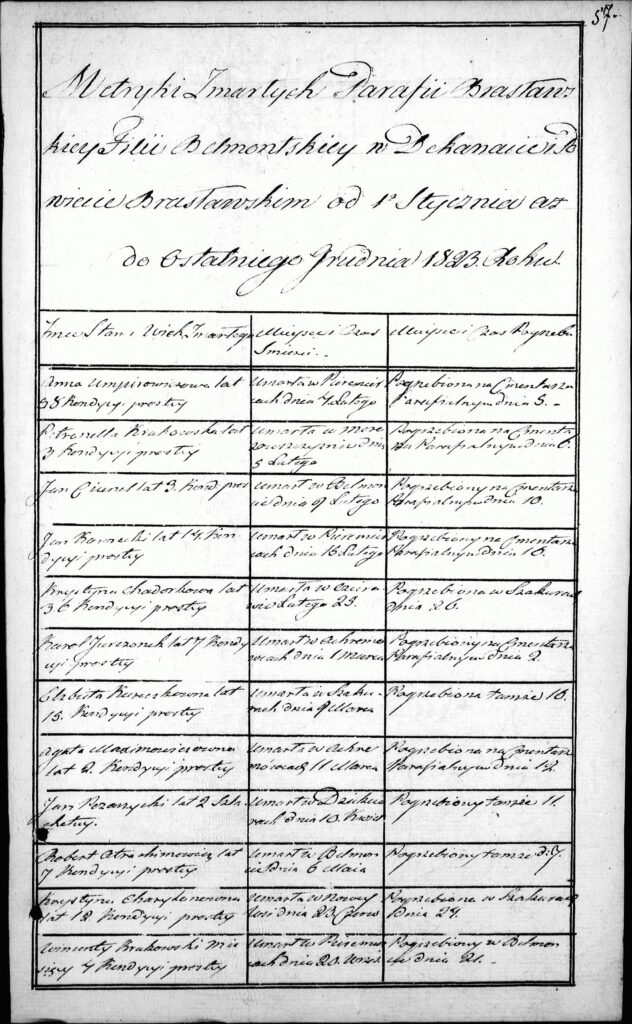 57.
Metryki Zmarłych Parafii Brasław
skiey Filii Belmontskiey w Dekanacie i Po
wiecie Brasławskim od 1º Stycznia aż
do Ostatniego Grudnia 1823. Roku
Imie Stan i Wiek Zmarłego
Mieysce i Czas
Śmierci
Mieysce i Czas Pogrzebu
Anna lat
38 Kondycyi prostey
Umarła w
dnia 4 Lutego
Pogrzebiona na Cmentarzu
Parafialnym dnia 5.
Petronella Krakowska lat
3 Kondycyi prostey
Umarła w
dnia
5 Lutego
Pogrzebiona na Cmenta
rzu Parafialnym dnia 6.
Jan lat 3. Kond pros
Umarł w Belmon
cie dnia 9 Lutego
Pogrzebiony na Cmentarzu
Parafialnym dnia 10.
Jan lat 14. Kon
dycyi prostey
Umarł w
dnia 15 Lutego
Pogrzebiony na Cmentarzu
Parafialnym dnia 16.
Krystyna lat
36 Kondycyi prostey
Umarła w
Lutego 25.
Pogrzebiona w
dnia 26.
Karol Jurczonek lat 7 Kondy
cyi prostey
Umarł w Achremo
wcach dnia 1 Marca
Pogrzebiony na Cmentarzu
Parafialnym dnia 2.
Elzbieta lat
15. Kondycyi prostey
Umarła w Szaku
rach dnia 9 Marca
Pogrzebiona tamże 10.
Agata Maximowiczowna
lat 2. Kondycyi prostey
Umarła w Achre
mowcach 11 Marca
Pogrzebiona na Cmentarzu
Parafialnym dnia 12.
Jan lat 2 Szla
chetny.
Umarł w
dnia 10. Kwiet
Pogrzebiony tamże 11.
Robert lat
7 Kondycyi prostey
Umarł w Belmon
cie dnia 6 Maia
Pogrzebiony tamże d: 7.
Krystyna
lat 12. Kondycyi prostey
Umarła w Nowey
Wsi dnia 23 Czerw
Pogrzebiona w
dnia 24.
Wincenty Krakowski mie
sięcy 4 Kondycyi prostey
Umarł w
dnia 20. Wrześ.
Pogrzebiony w Belmon
cie dnia 21.